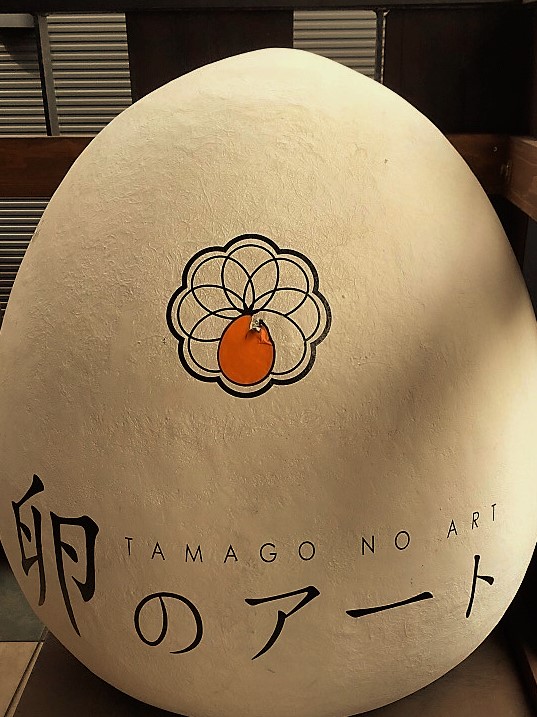 TAMAGO NO ART
卵のアート